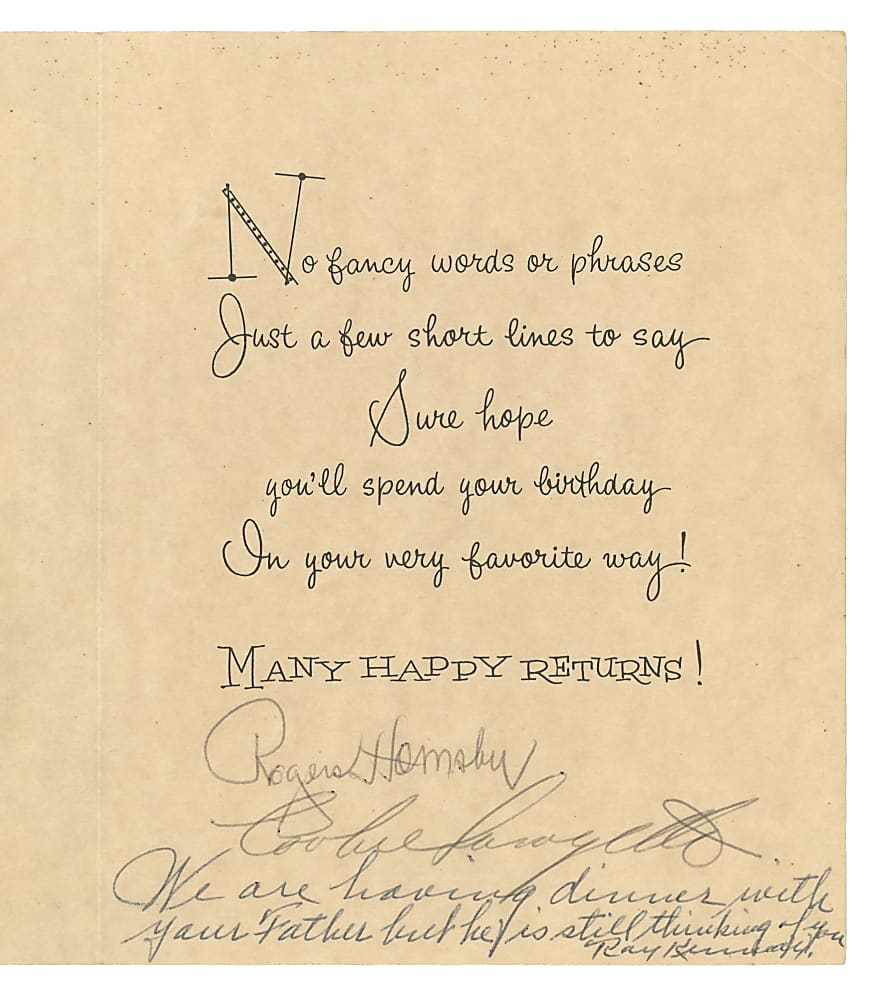 No fancy words or phrases
Just a few short lines to say
Sure hope
you'll spend your birthday
In your very favorite way!
MANY HAPPY RETURNS!
Rogers Hornsby
Cookie Lavagetto
We are having dinner with
your Father but he is still thinking of you
Ray Kennedy.